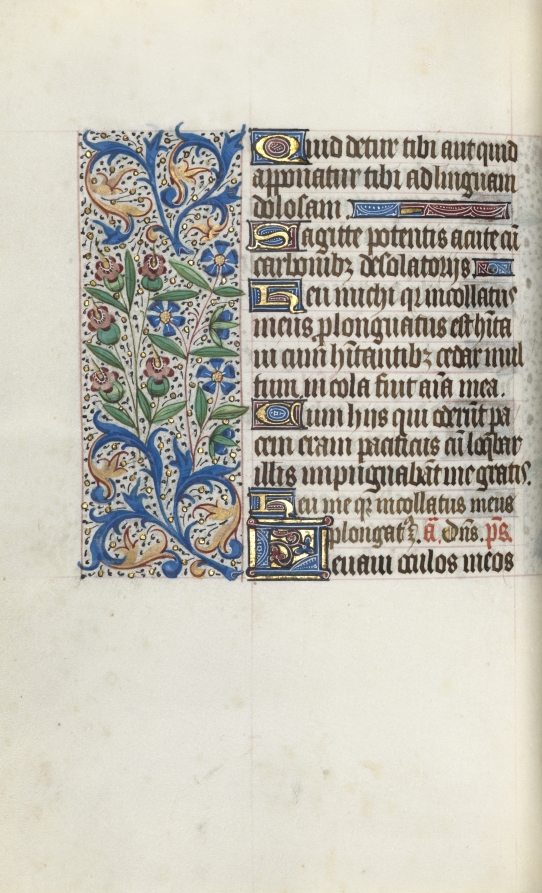 Quid detur tibi aut quid
apponatur tibi ad linguam
dolosam
Sagitte potentis acute cū
carbonibꝫ desolatorijs
Heu michi qꝛ incollatus
meus plonguatus est hīta
ui cum hītantibꝫ cedar mul
tum incola fuit aīa mea.
Cum hijs qui oderūt pa
cem eram pacificus cū loq̄bar
illis impugnabāt me gratis.
Heu me qꝛ incollatus meus
plongatꝰ ē. ā. dn̄s. p̄s.
Leuaui oculos meos